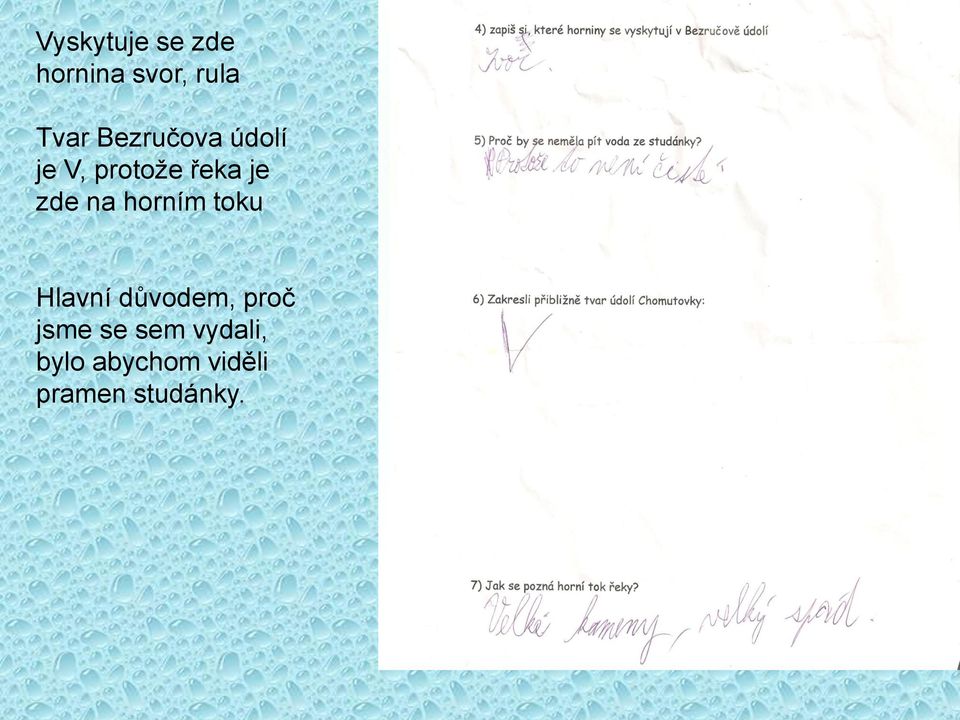 Vyskytuje se zde
hornina svor, rula
Tvar Bezručova údolí
je V, protože řeka je
zde na horním toku
Hlavní důvodem, proč
jsme se sem vydali,
bylo abychom viděli
pramen studánky.
4) zapiš si, které horniny se vyskytují v Bezručově údolí
5) Proč by se neměla pít voda ze studánky?
Protože to není čisté
6) Zakresli přibližně tvar údolí Chomutovky:
V
7) Jak se pozná horní tok řeky?
Velké kameny, velký spád.